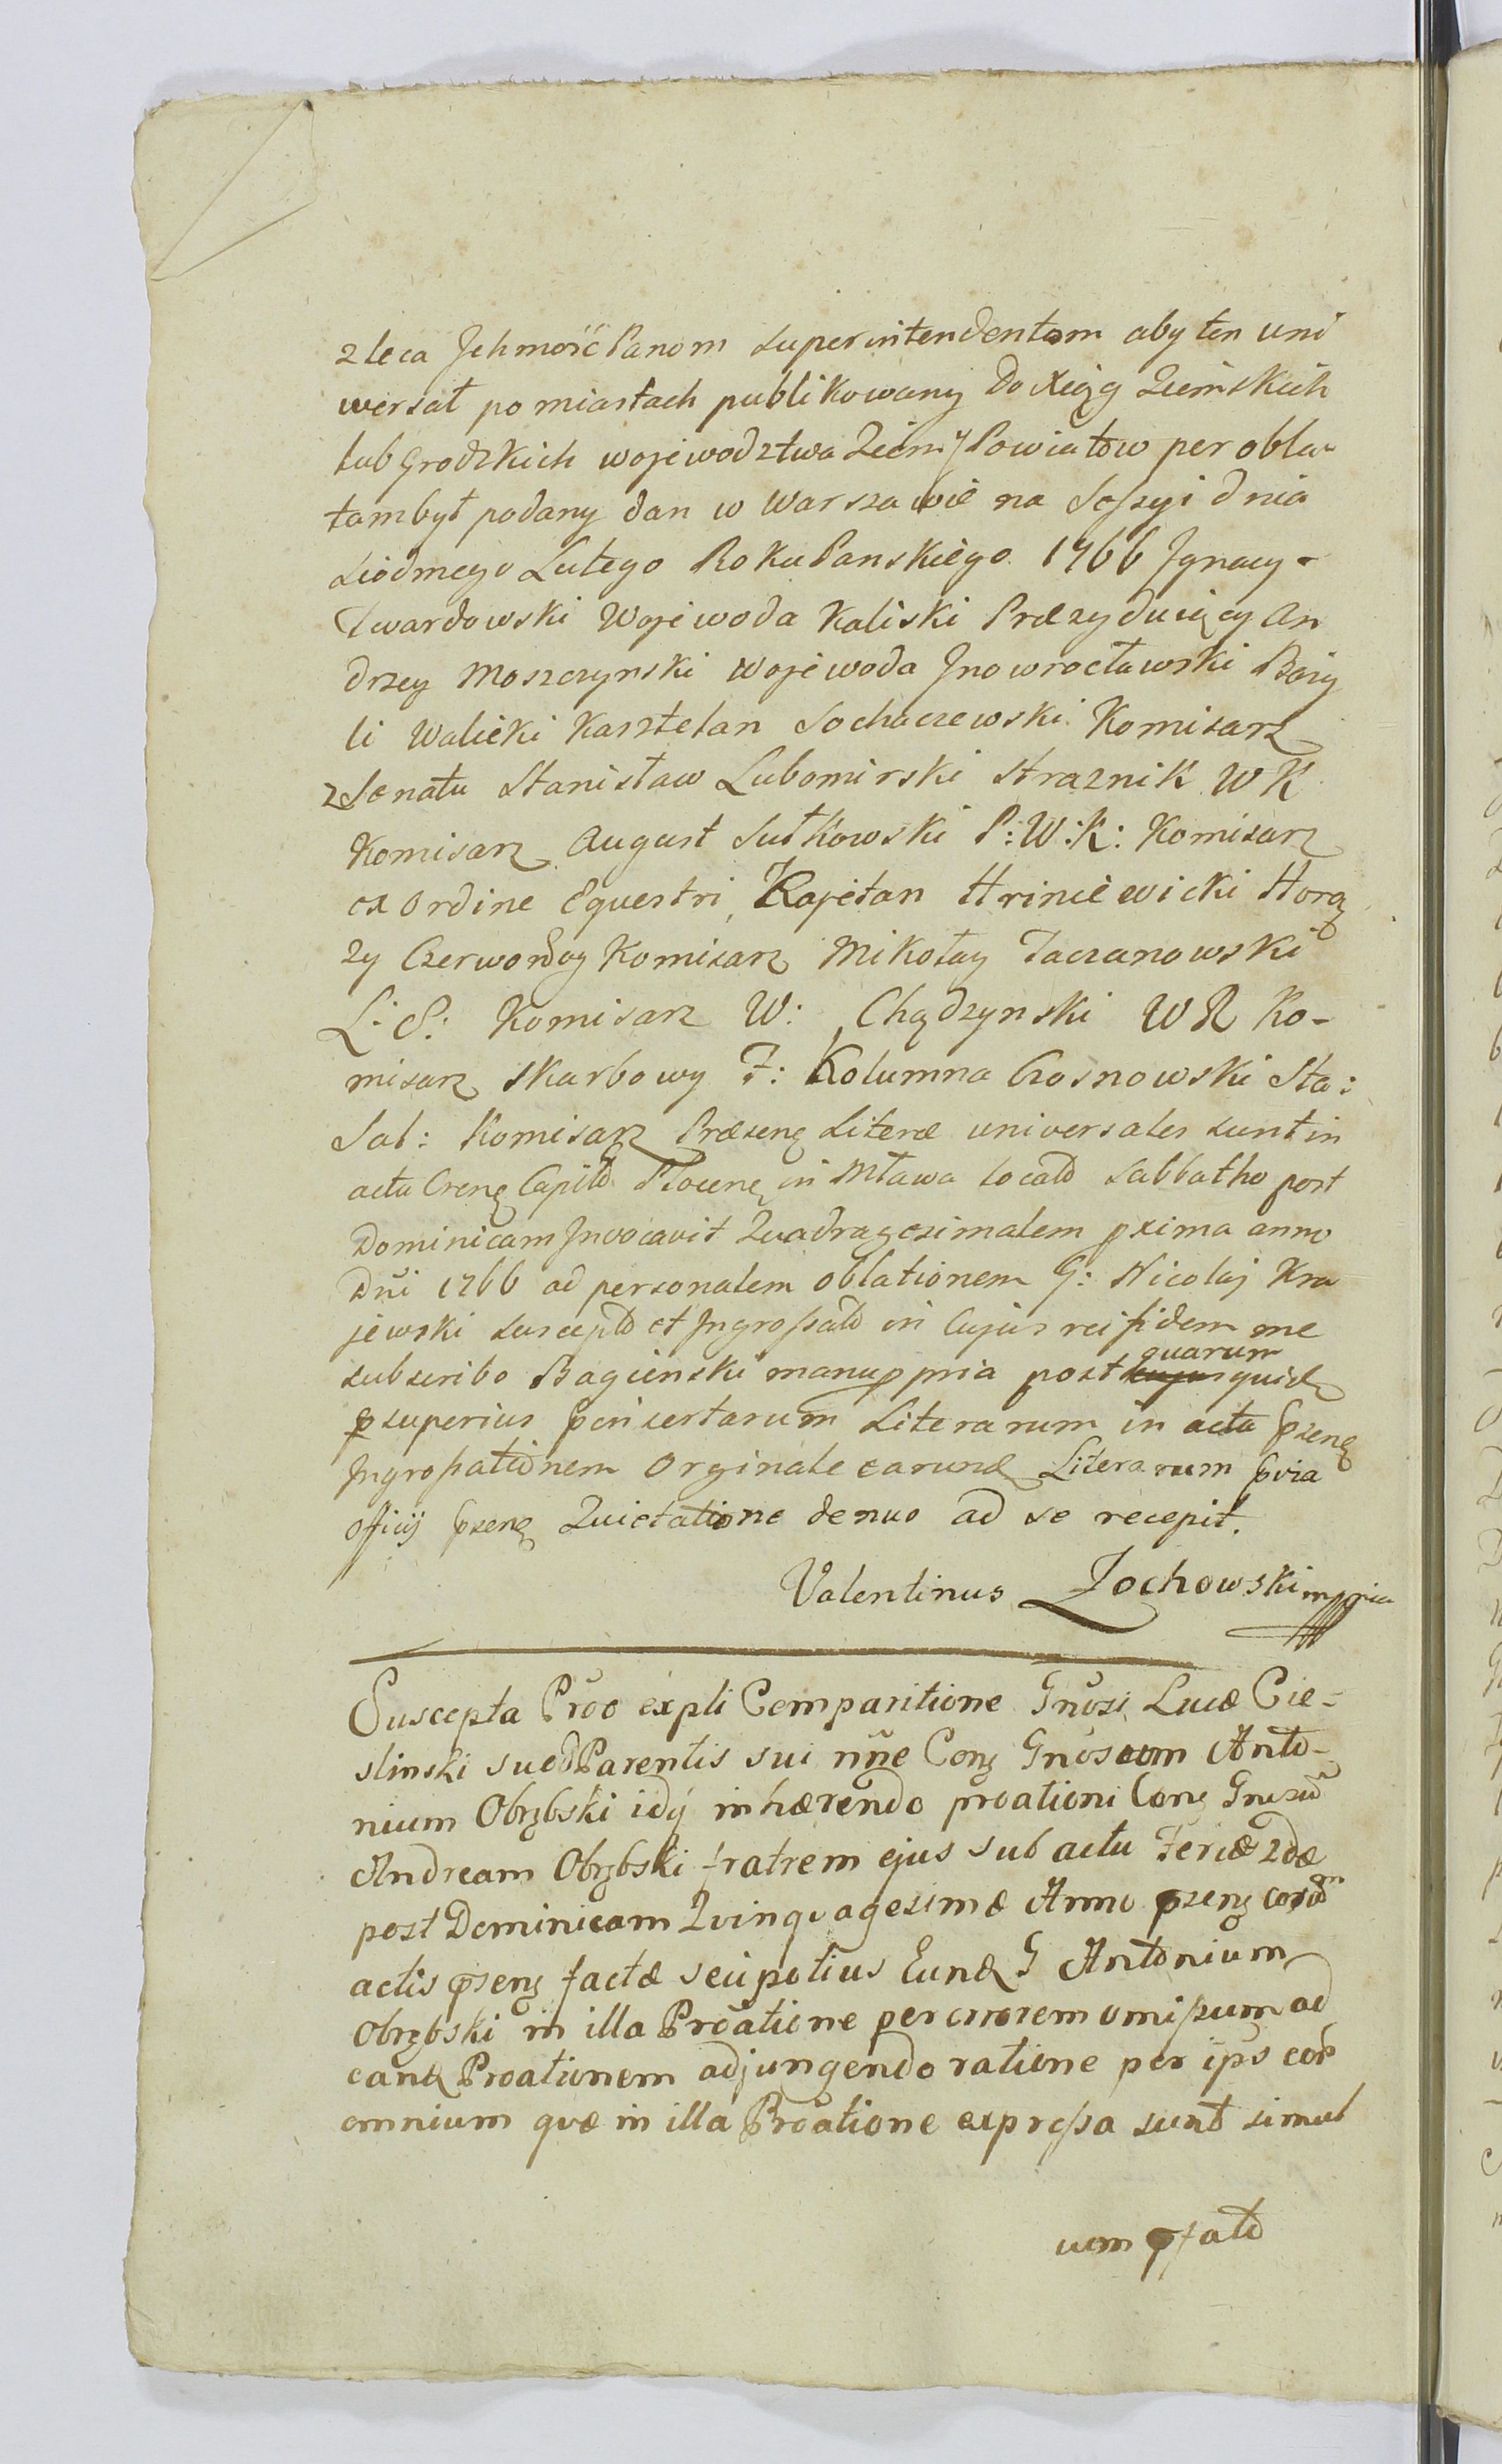 zleca Jchmość Panom Superintendentom aby ten uni
wersał po miastach publikowany do Xiąg Ziemskich
lub Grodzkich wojewodztwa Ziemi y Powiatow per obla-
tam był podany dan w Warszawie na Seszyi dnia
Siodmego Lutego Roku Panskiego 1766 Jgnacy -
Twardowski Wojewoda Kaliski Prezyduiący An
drzey Moszczynski wojewoda Jnowrocławski Bazy
li Walicki Kasztelan Sochaczewski Komisarz
z Senatu Stanisław Lubomirski Straznik WK
Komisarz August Sułkowski P: W: K: Komisarz
ex Ordine Equestri, Kajetan Hriniewicki Horą
zy Czerwony Komisarz Mikołay Taczanowski
L: S: Komisarz W: Chądzynski WR Ko-
misarz Skarbowy F: Kolumna Czosnowski Sta:
Sal: Komisarz Præsenę Literæ universales sunt in
acta Crenę Capitł Plocenę in Mława locatd Sabbatho post
Dominicam Jnvocavit Quadragesimalem pxima anno
Dni 1766 ad personalem oblationem G: Nicolaj Kra
jewski suscepd et Jngroſsatd in Cujus rei fidem me
subscribo Bagienski manuppria post quarum quide
p superius pinsertarum Literarum in acta psenę
Jngroſsationem Orginale earund Literarum pvia
officij psenę Quietatione denuo ad se recepit.
Valentinus Zochowski mppria
Suscepta Proo expli Comparitione Gnosi Lucæ Cie-
slinski sued Parentis sui nne Conę Gnosum Anto-
nium Obrębski idq inhærendo proationi Conę Gnosū
Andream Obrębski fratrem ejus sub actu Feriæ 2dæ
post Dominicam Quinquagesimæ Anno psenę cord
actis psenę factæ seu potius Eund G Antonium
Obrębski in illa Proatione per errorem omiſsum ad
eand Proationem adjungendo ratione per ips cor
omnium qvæ in illa Proatione expreſsa sunt simul
cum pfatd